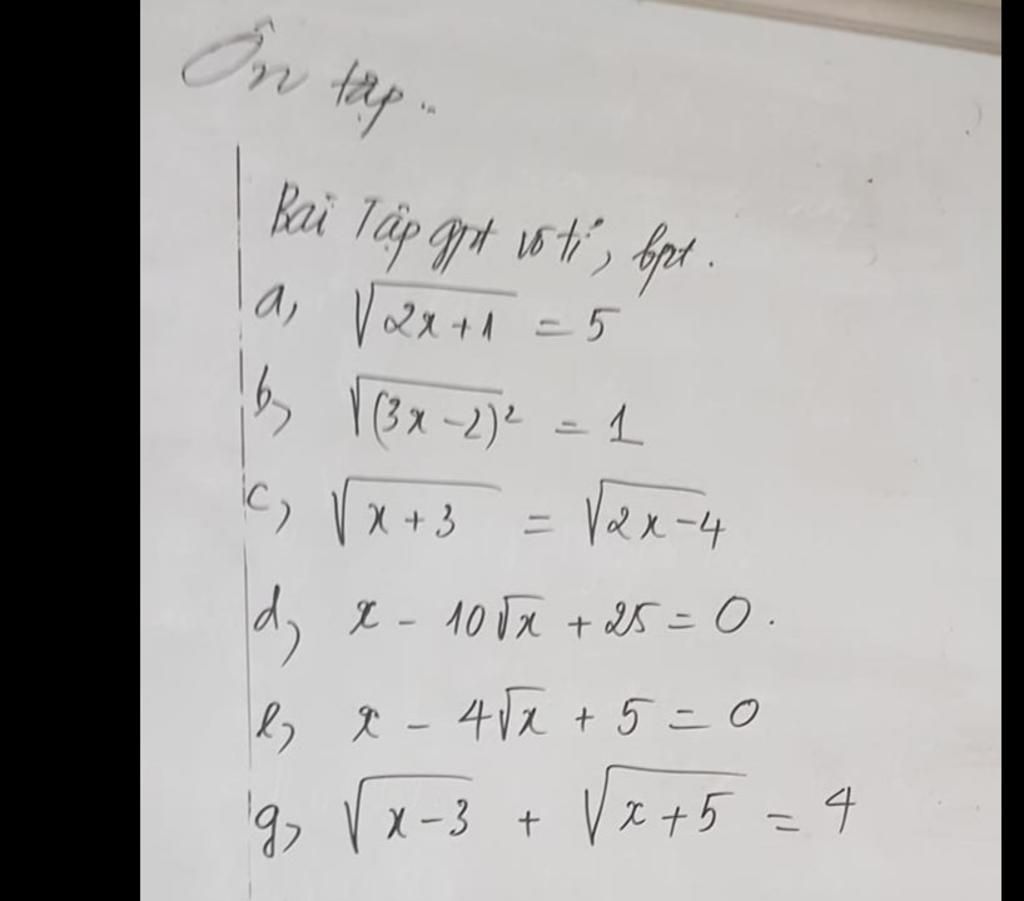 Ôn tập..
Bài Tập gpt vô tỉ, bpt.
a, √(2x+1) = 5
b, √(3x-2)² = 1
c, √(x+3) = √(2x-4)
d, x - 10√x + 25 = 0.
e, x - 4√x + 5 = 0
g, √(x-3) + √(x+5) = 4